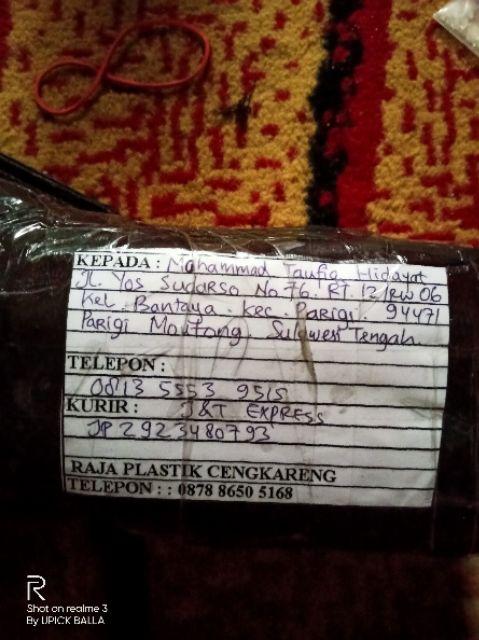 KEPADA : Mohammad Taufiq Hidayat
Jl. Yos Sudarso No 76. RT. 12/RW 06
Kel. Bantaya. Kec. Parigi. 94471
Parigi Moutong. Sulawesi Tengah.
TELEPON :
0813 5553 9515
KURIR : J&T EXPRESS
JP 2923480793
RAJA PLASTIK CENGKARENG
TELEPON : : 0878 8650 5168
R
Shot on realme 3
By UPICK BALLA